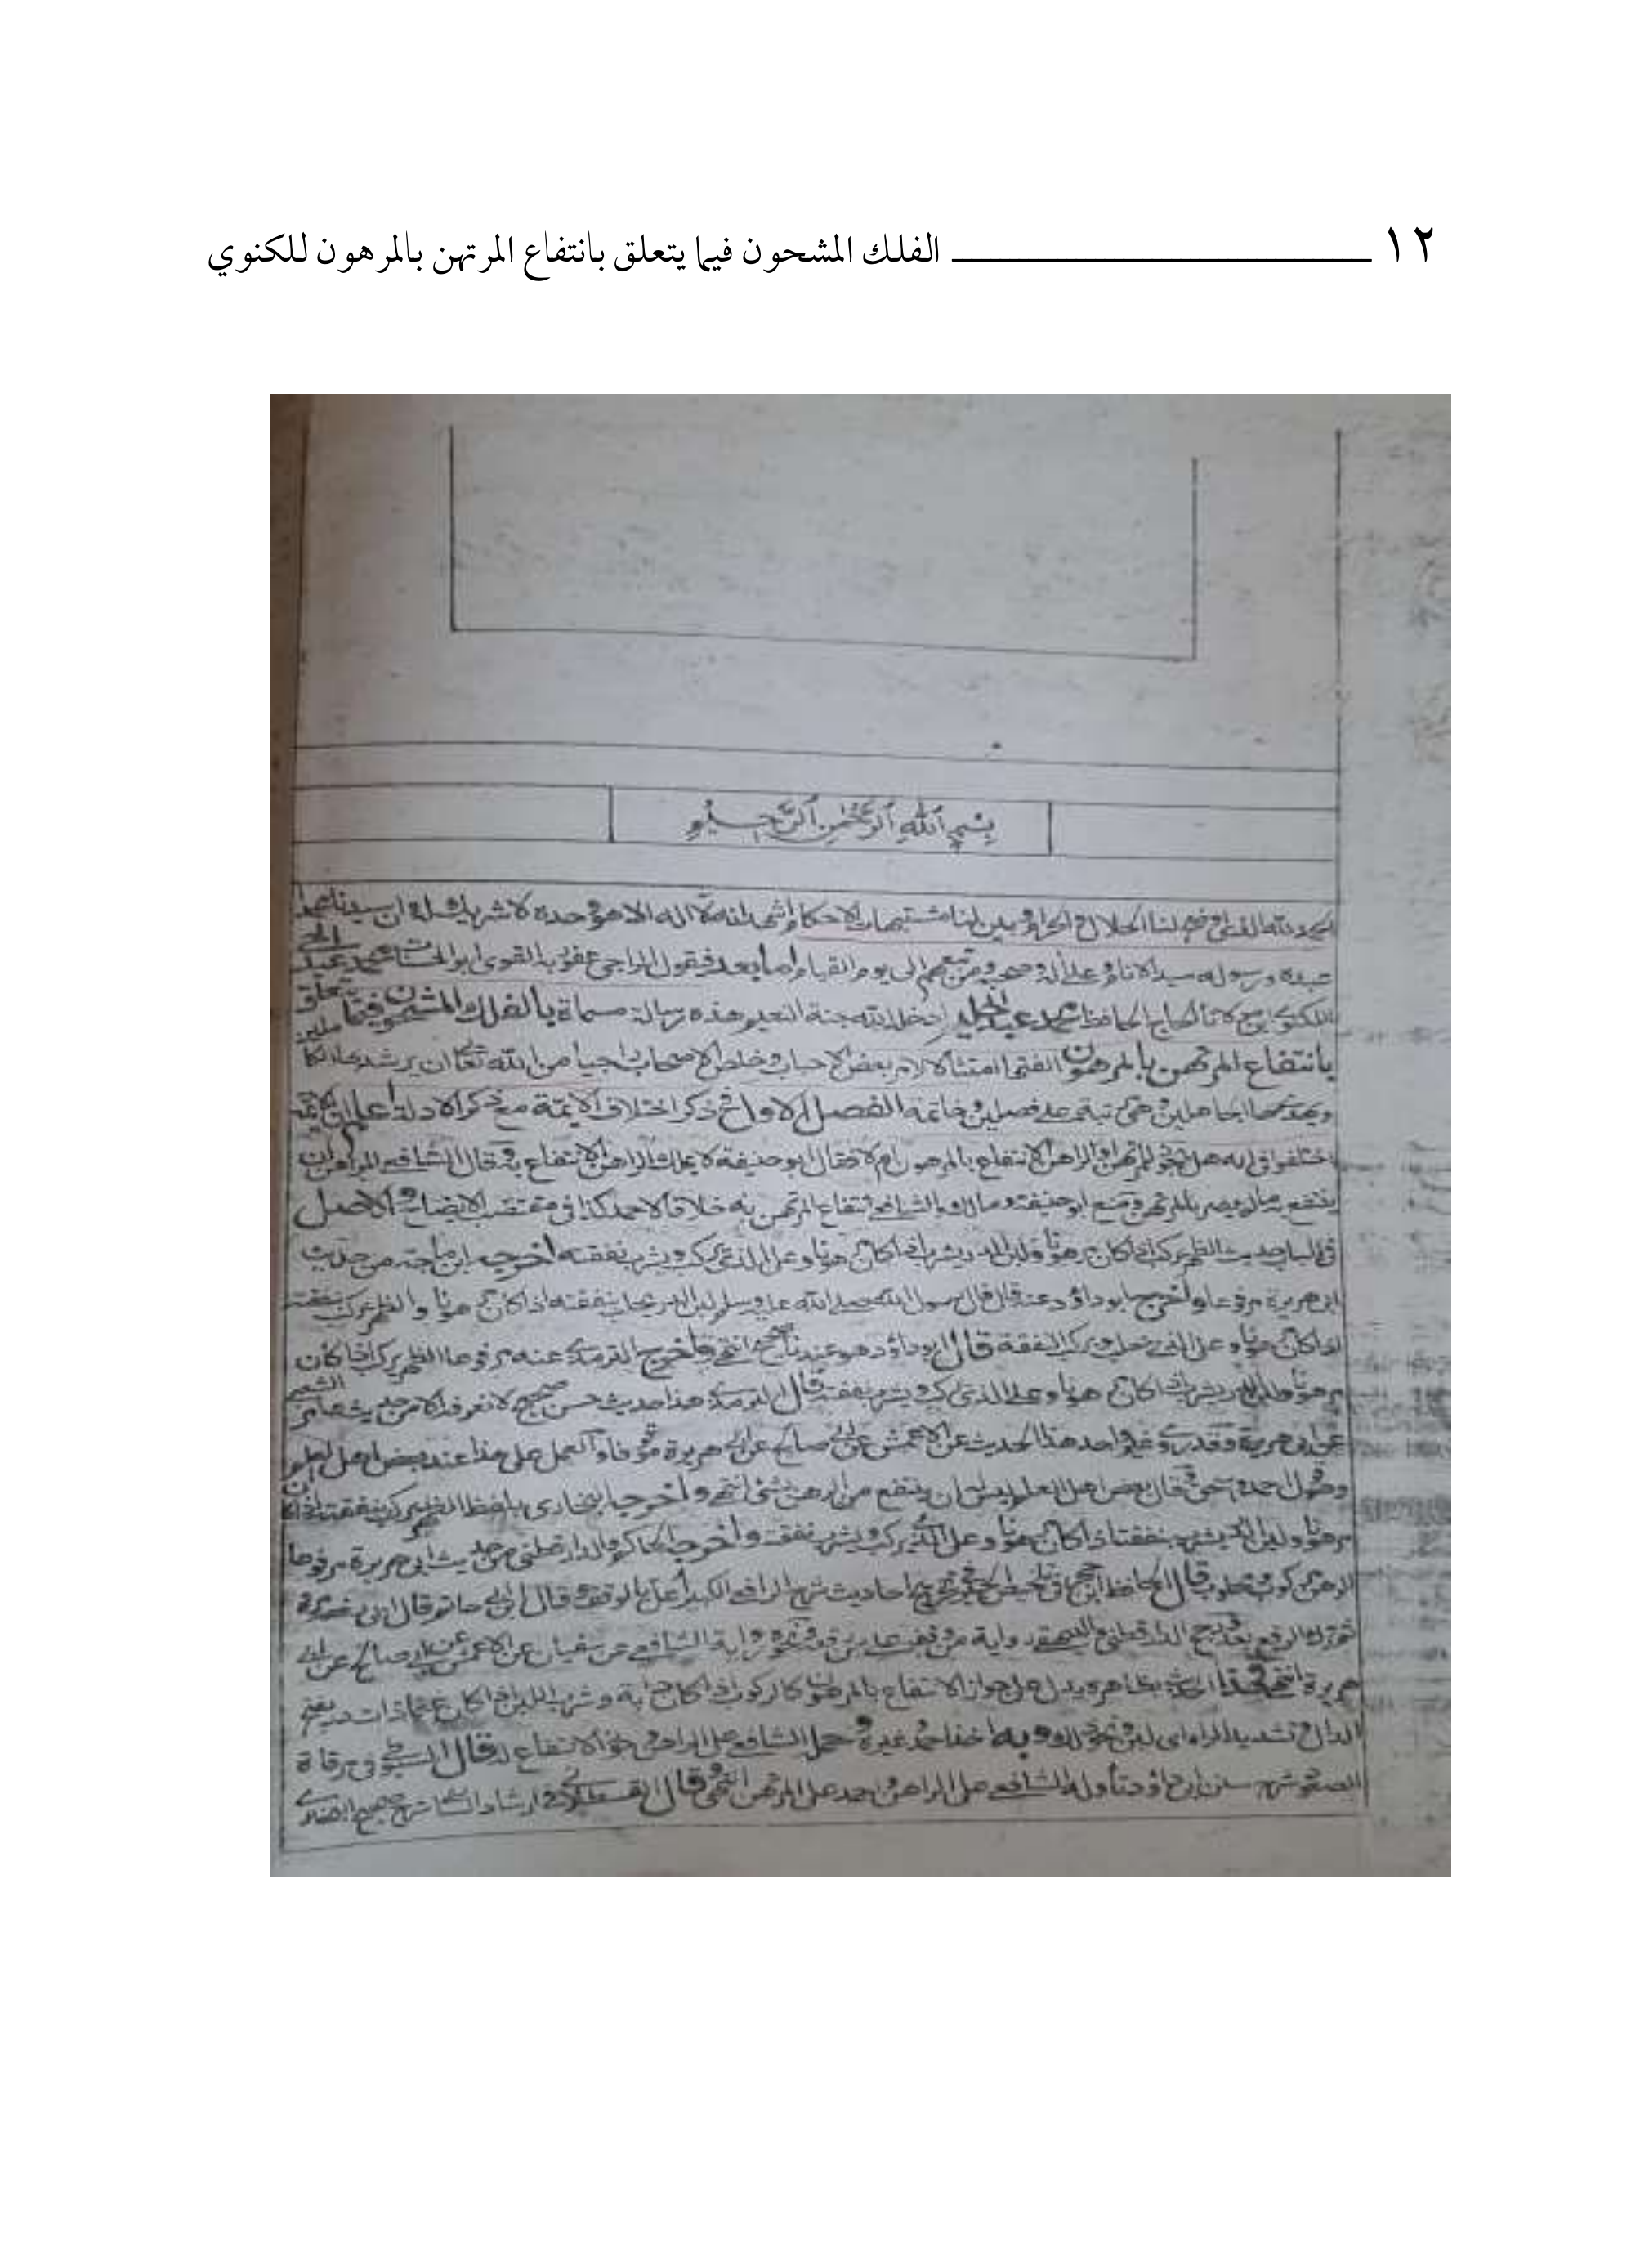 ١٢ ــــــــــــــــــــ الفلك المشحون فيما يتعلق بانتفاع المرتهن بالمرهون للكنوي
بِسْمِ اللهِ الرَّحْمٰنِ الرَّحِيْمِ
الحمد لله الذي لنا الحلال والحرام وبين لنا مشتبهات الاحكام اشهد انه لا اله الا هو وحده لا شريك له وان سيدنا محمدا
عبده ورسوله سيد الانام وعلى آله وصحبه ومن تبعهم الى يوم القيام اما بعد فيقول الراجي عفو ربه القوى ابو الحسنات محمد عبد الحي
اللكنوي ابن مولانا الحاج الحافظ محمد عبد الحليم ادخله الله جنة النعيم هذه رسالة مسماة بالفلك المشحون فيما يتعلق
بانتفاع المرتهن بالمرهون الفتها امتثالا لامر بعض الاحباب وخلص الاصحاب راجيا من الله تعالى ان يرشد بها
الجاهلين وهي مرتبة على فصلين وخاتمة الفصل الاول في ذكر اختلاف الائمة مع ذكر الادلة اعلم ان الائمة
اختلفوا في انه هل يجوز للمرتهن او الراهن الانتفاع بالمرهون ام لا فقال ابو حنيفة لا يملك الراهن الانتفاع به وقال الشافعي للراهن ان
ينتفع به ما لم يضر بالمرتهن ومنع ابو حنيفة ومالك والشافعي انتفاع المرتهن به خلافا لاحمد كذا في والاصل
في الباب حديث الظهر يركب اذا كان مرهونا ولبن الدر يشرب اذا كان مرهونا وعلى الذي يركب ويشرب نفقته اخرجه ابن ماجة من حديث
ابي هريرة مرفوعا واخرج ابو داؤد عنه قال قال رسول الله صلى الله عليه وسلم لبن الدر يحلب بنفقته اذا كان مرهونا والظهر يركب بنفقته
اذا كان مرهونا وعلى الذي يحلب ويركب النفقة قال ابو داؤد وهو عندنا صحيح انتهى واخرج الترمذي عنه مرفوعا الظهر يركب اذا كان
مرهونا ولبن الدر يشرب اذا كان مرهونا وعلى الذي يركب ويشرب نفقته قال الترمذي هذا حديث حسن صحيح لا نعرفه الا من حديث عامر الشعبي
عن ابي هريرة وقد روى غير واحد هذا الحديث عن الاعمش عن ابي صالح عن ابي هريرة موقوفا والعمل على هذا عند بعض اهل العلم
وهو قول احمد واسحق وقال بعض اهل العلم ليس له ان ينتفع من الرهن بشئ انتهى واخرجه البخارى بلفظ الظهر يركب بنفقته اذا كان
مرهونا ولبن الدر يشرب بنفقته اذا كان مرهونا وعلى الذي يركب ويشرب نفقته واخرجه الحاكم والدار قطني من حديث ابي هريرة مرفوعا
الرهن مركوب ومحلوب قال الحافظ ابن حجر في تلخيص الحبير في تخريج احاديث شرح الرافعي الكبير اعل بالوقف وقال ابن ابي حاتم قال ابي
ثم ترك الرفع بعد ورجح الدار قطني والبيهقي رواية من وقفه على من رفعه وهي رواية الشافعي عن سفيان عن الاعمش عن ابي صالح عن ابي
هريرة انتهى فهذا الحديث بظاهره يدل على جواز الانتفاع بالمرهون كالركوب اذا كان دابة وشرب اللبن اذا كان غنما ذات در بفتح
الدال وتشديد الراء اى لبن ونحو ذلك وبه اخذ احمد وغيره وحمل الشافعي على الراهن الانتفاع وقال السيوطي في مرقاة
الصعود شرح سنن ابي داؤد تأوله الشافعي على الراهن واحمد على المرتهن انتهى وقال القسطلاني في ارشاد السارى شرح صحيح البخارى